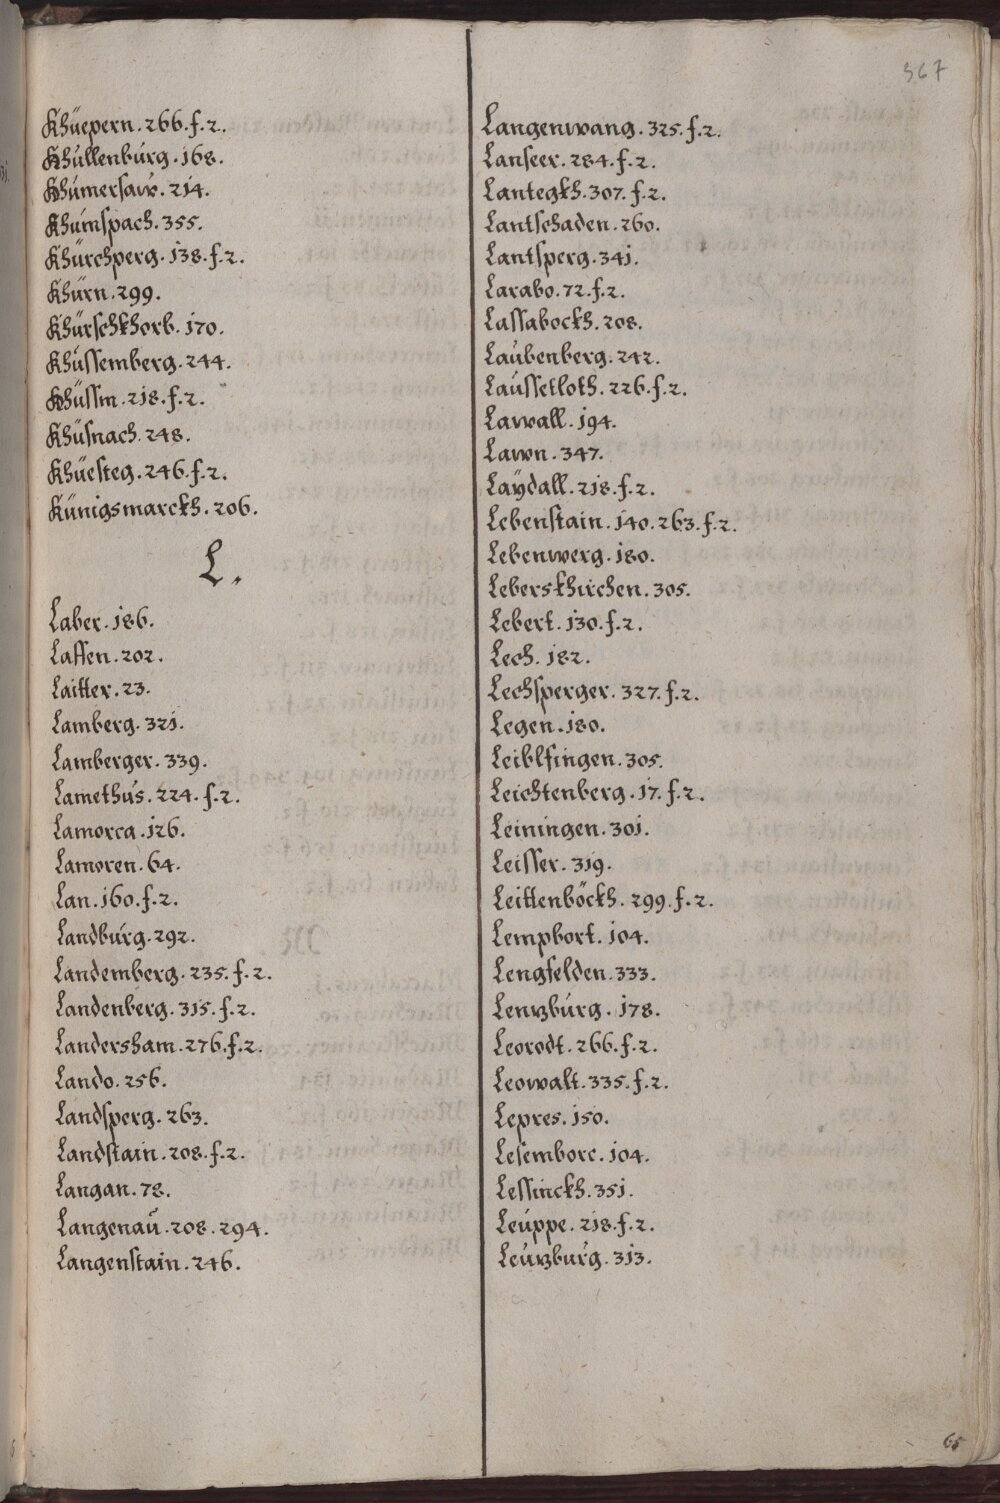 367
Khüepern. 266. f. 2.
Khüllenbúrg. 168.
Khúmersaw. 214.
Khúmspach. 355.
Khürchperg. 138. f. 2.
Khürn. 299.
Khürschkhorb. 170.
Khússemberg. 244.
Khüssm. 218. f. 2.
Khüsnach. 248.
Khüesteg. 246. f. 2.
Künigsmarckh. 206.
L.
Laber. 186.
Lassen. 202.
Laitter. 23.
Lamberg. 321.
Lamberger. 339.
Lamethús. 224. f. 2.
Lamorca. 126.
Lamoren. 64.
Lan. 160. f. 2.
Landbúrg. 292.
Landemberg. 235. f. 2.
Landenberg. 315. f. 2.
Landersham. 276. f. 2.
Lando. 256.
Landsperg. 263.
Landstain. 208. f. 2.
Langan. 78.
Langenaú. 208. 294.
Langenstain. 246.
Langenwang. 325. f. 2.
Lanseer. 284. f. 2.
Lantegkh. 307. f. 2.
Lantschaden. 260.
Lantsperg. 341.
Larabo. 72. f. 2.
Lassabockh. 208.
Laúbenberg. 242.
Laússetloth. 226. f. 2.
Lawall. 194.
Lawn. 347.
Laÿdall. 218. f. 2.
Lebenstain. 140. 263. f. 2.
Lebenwerg. 180.
Leberskhirchen. 305.
Lebert. 130. f. 2.
Lech. 182.
Lechsperger. 327. f. 2.
Legen. 180.
Leiblfingen. 305.
Leichtenberg. 17. f. 2.
Leiningen. 301.
Leisser. 319.
Leittenböckh. 299. f. 2.
Lempbort. 104.
Lengfelden. 333.
Lenzbúrg. 178.
Leorodt. 266. f. 2.
Leowalt. 335. f. 2.
Lepres. 150.
Lesemborc. 104.
Lessinckh. 351.
Leúppe. 218. f. 2.
Leúzbúrg. 313.
65